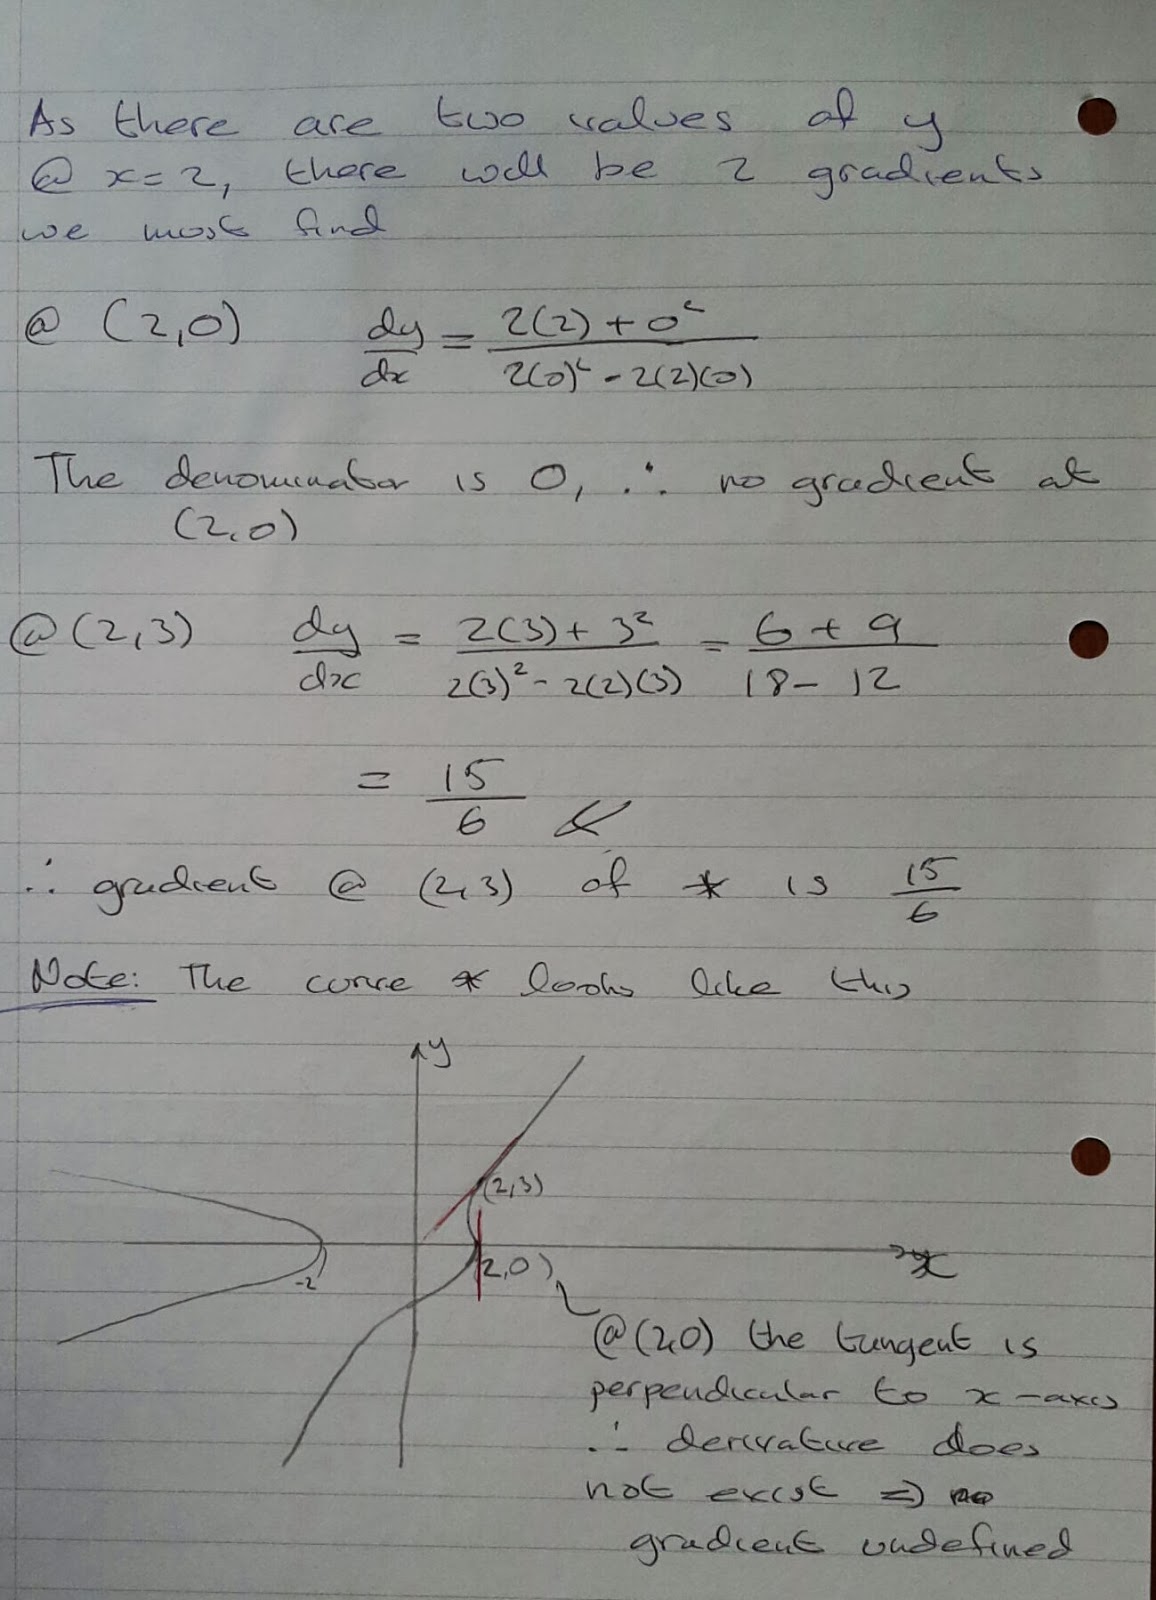 As there are two values of y
@ x=2, there will be 2 gradients
we most find
@ (2,0) dy/dx = (2(2) + 0²)/(2(0)² - 2(2)(0))
The denominator is 0, ∴ no gradient at
(2,0)
@ (2,3) dy/dx = (2(3) + 3²)/(2(3)² - 2(2)(3)) = (6 + 9)/(18 - 12)
= 15/6
∴ gradient @ (2,3) of * is 15/6
Note: The curve * looks like this
y
(2,3)
-2
(2,0)
x
@(2,0) the tangent is
perpendicular to x-axis
∴ derivative does
not exist ⇒ no
gradient undefined